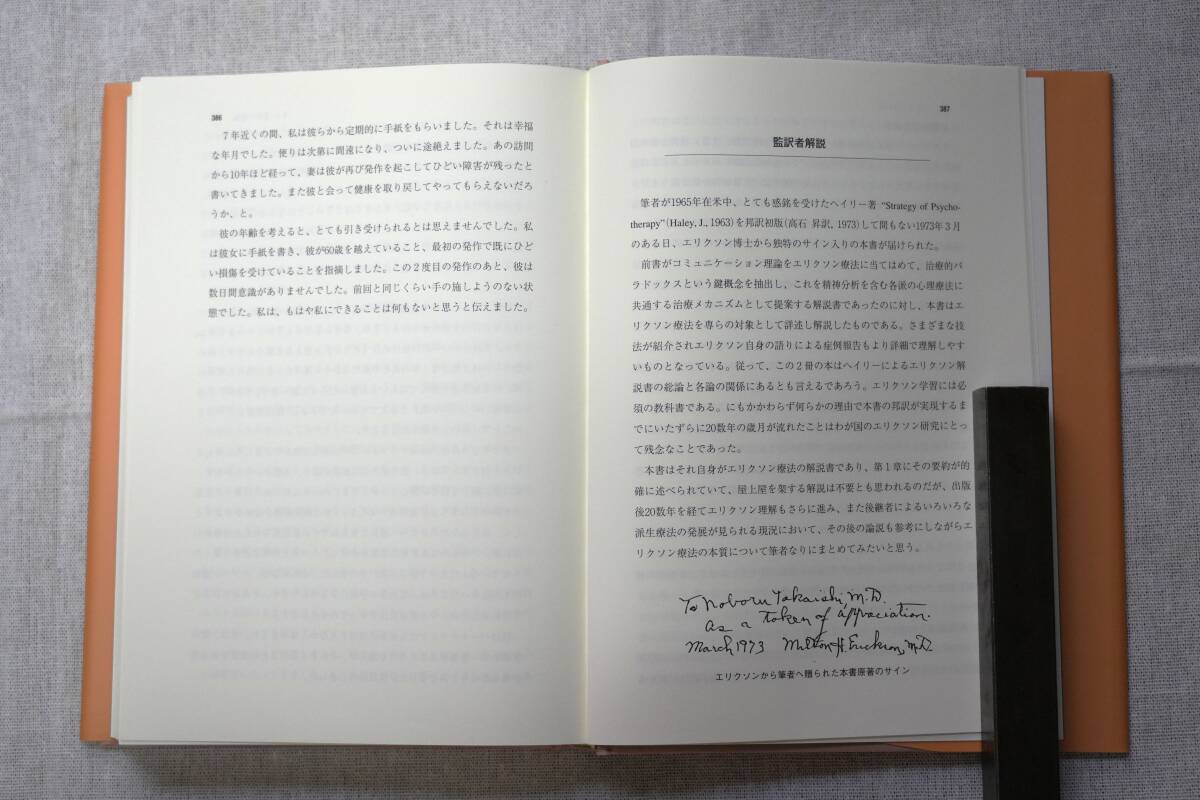 386
７年近くの間、私は彼らから定期的に手紙をもらいました。それは幸福
な年月でした。便りは次第に間遠になり、ついに途絶えました。あの訪問
から10年ほど経って、妻は彼が再び発作を起こしてひどい障害が残ったと
書いてきました。また彼と会って健康を取り戻してやってもらえないだろ
うか、と。
彼の年齢を考えると、とても引き受けられるとは思えませんでした。私
は彼女に手紙を書き、彼が60歳を越えていること、最初の発作で既にひど
い損傷を受けていることを指摘しました。この２度目の発作のあと、彼は
数日間意識がありませんでした。前回と同じくらい手の施しようのない状
態でした。私は、もはや私にできることは何もないと思うと伝えました。
387
監訳者解説
筆者が1965年在米中、とても感銘を受けたヘイリー著 “Strategy of Psycho-
therapy”(Haley, J., 1963) を邦訳初版(高石 昇訳, 1973) して間もない1973年３月
のある日、エリクソン博士から独特のサイン入りの本書が届けられた。
前書がコミュニケーション理論をエリクソン療法に当てはめて、治療的パ
ラドックスという鍵概念を抽出し、これを精神分析を含む各派の心理療法に
共通する治療メカニズムとして提案する解説書であったのに対し、本書はエ
リクソン療法を専らの対象として詳述し解説したものである。さまざまな技
法が紹介されエリクソン自身の語りによる症例報告もより詳細で理解しやす
いものとなっている。従って、この２冊の本はヘイリーによるエリクソン解
説書の総論と各論の関係にあるとも言えるであろう。エリクソン学習には必
須の教科書である。にもかかわらず何らかの理由で本書の邦訳が実現するま
でにいたずらに20数年の歳月が流れたことはわが国のエリクソン研究にとっ
て残念なことであった。
本書はそれ自身がエリクソン療法の解説書であり、第１章にその要約が的
確に述べられていて、屋上屋を架する解説は不要とも思われるのだが、出版
後20数年を経てエリクソン理解もさらに進み、また後継者によるいろいろな
派生療法の発展が見られる現況において、その後の論説も参考にしながらエ
リクソン療法の本質について筆者なりにまとめてみたいと思う。
To Noboru Takaishi, M.D.
as a token of appreciation.
March 1973 Milton H. Erickson, M.D.
エリクソンから筆者へ贈られた本書原著のサイン